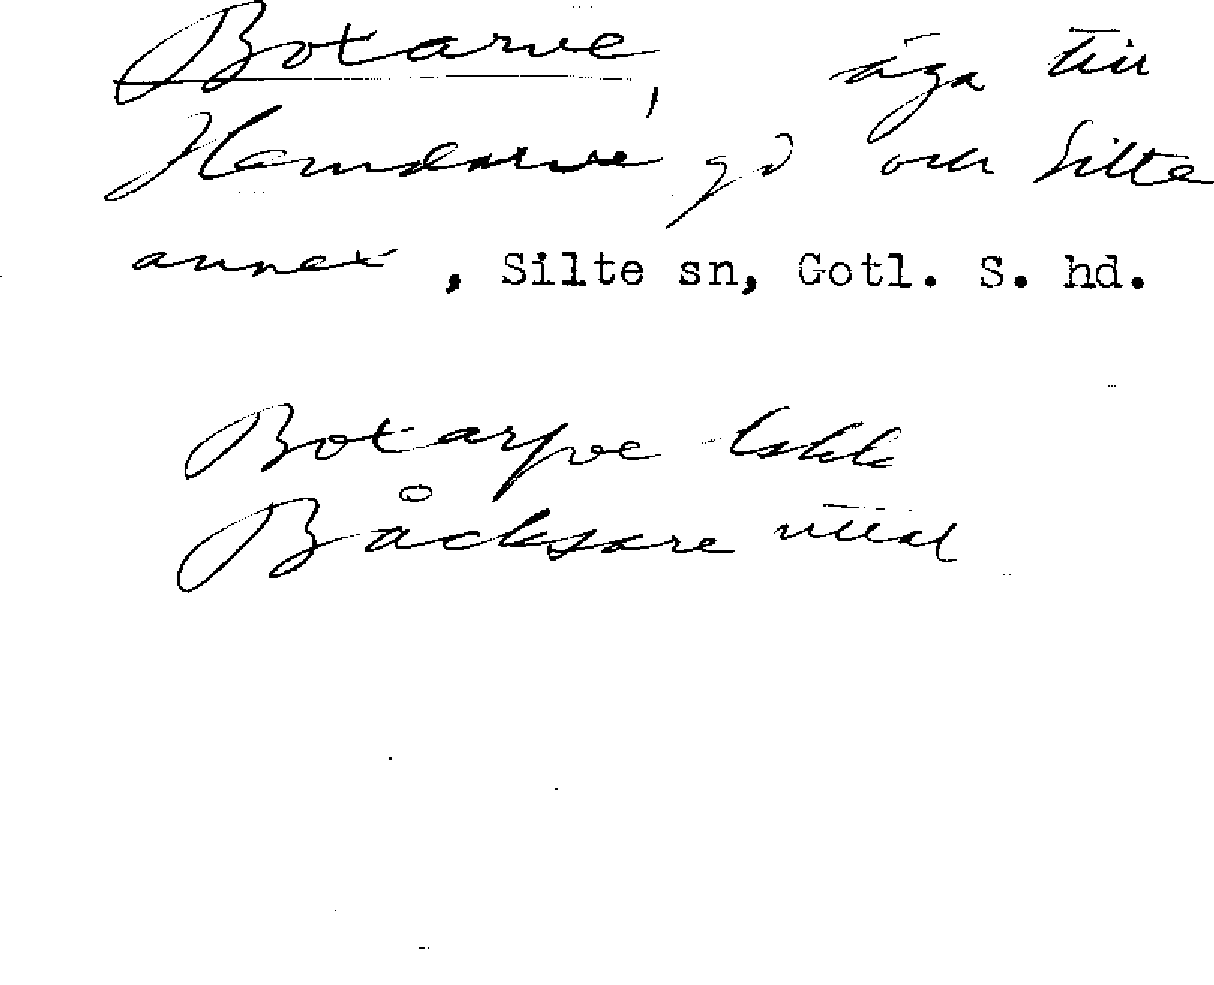 Botarve, äga till
Hemdarve gd och Silte
annex, Silte sn, Gotl. S. hd.
Botarfve
Båcksare